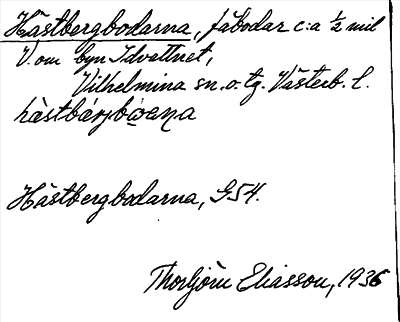 Hästbergbodarna, fäbodar c:a ½ mil
V. om byn Idvattnet,
Vilhelmina sn. o. tg. Västerb. l.
hàstbárjbωaṇa
Hästbergbodarna, G54.
Thorbjörn Eliasson, 1936